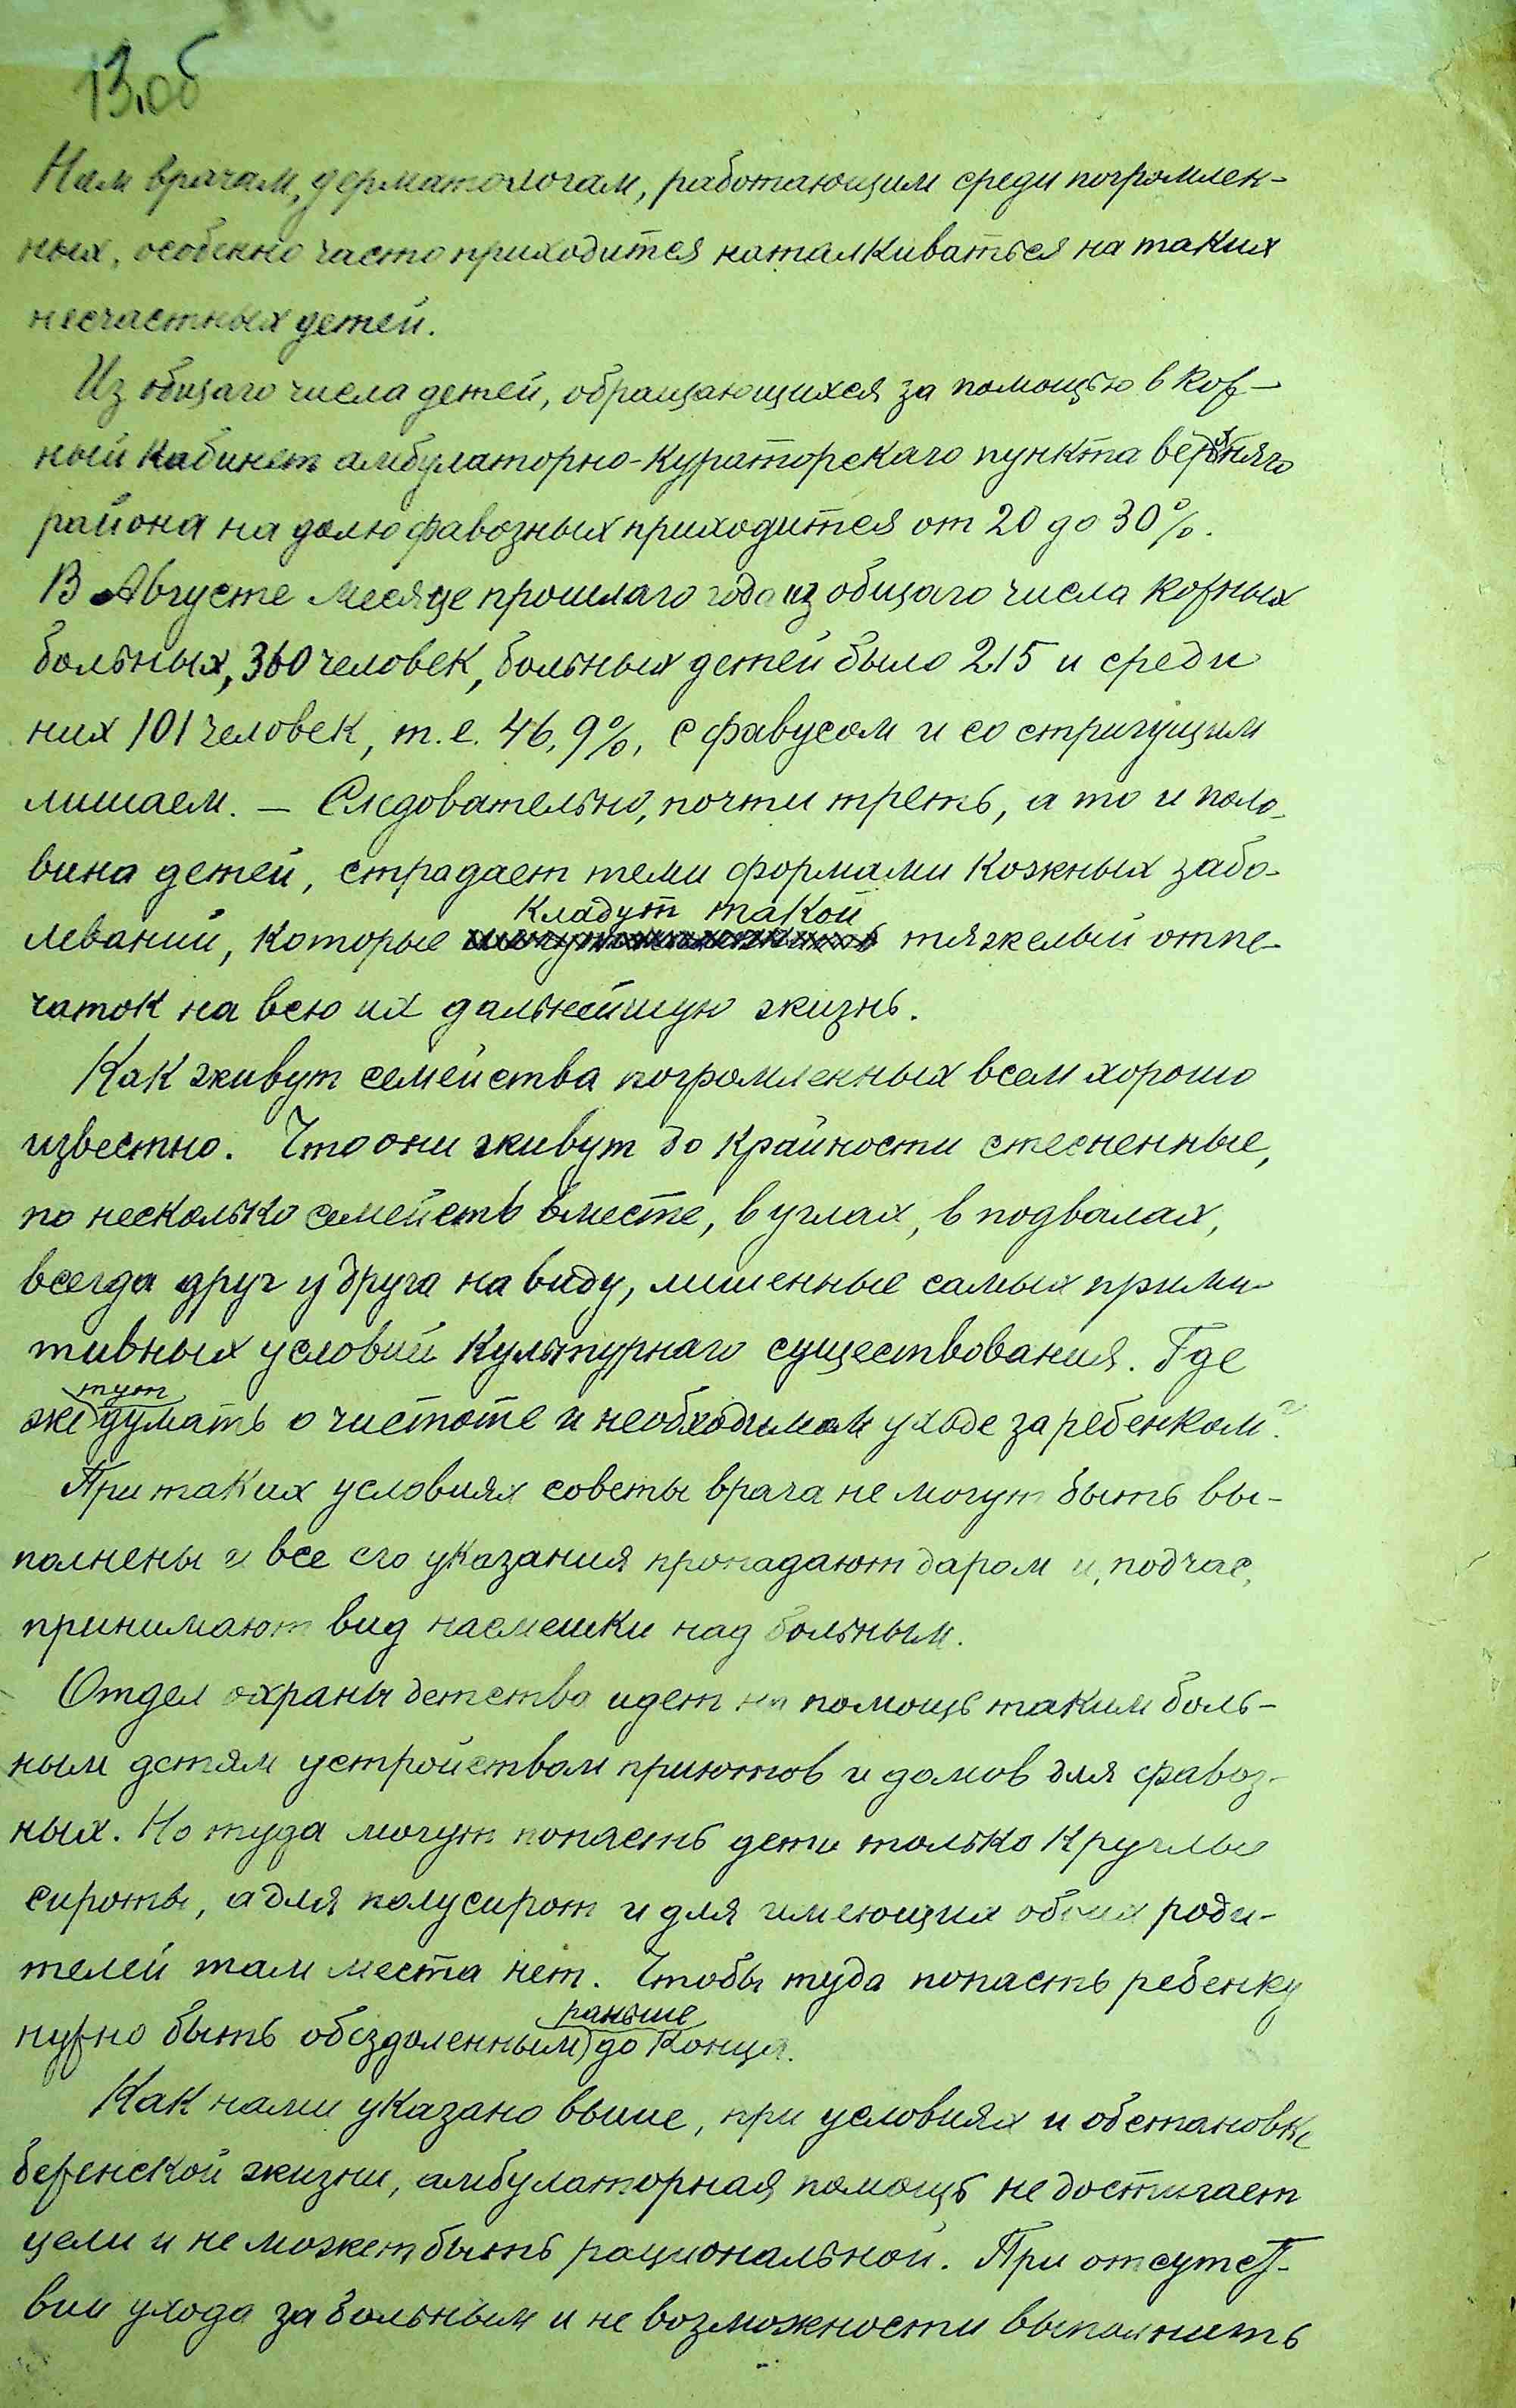 13.об
Нам врачам, дерматологам, работающим среди погромлен-
ных, особенно часто приходится наталкиваться на таких
несчастных детей.
Из общаго числа детей, обращающихся за помощью в кож-
ный кабинет амбулаторно-кураторскаго пункта верхняго
района на долю фавозных приходится от 20 до 30%.
В Августе месяце прошлаго года из общаго числа кожных
больных, 360 человек, больных детей было 215 и среди
них 101 человек, т.е. 46,9%, с фавусом и со стригущим
лишаем. – Следовательно, почти треть, а то и поло-
вина детей, страдает теми формами кожных забо-
кладут такой
леваний, которые тяжелый отпе-
чаток на всю их дальнейшую жизнь.
Как живут семейства погромленных всем хорошо
известно. Что они живут до крайности стесненные,
по несколько семейств вместе, в углах, в подвалах,
всегда друг у друга на виду, лишенные самых прими-
тивных условий культурнаго существования. Где
тут
же думать о чистоте и необходимом уходе за ребенком?
При таких условиях советы врача не могут быть вы-
полнены и все его указания пропадают даром и, подчас,
принимают вид насмешки над больным.
Отдел охраны детства идет на помощь таким боль-
ным детям устройством приютов и домов для фавоз-
ных. Но туда могут попасть дети только круглые
сироты, а для полусирот и для имеющих обоих роди-
телей там места нет. Чтобы туда попасть ребенку
раньше
нужно быть обездоленным до конца.
Как нами указано выше, при условиях и обстановке
беженской жизни, амбулаторная помощь не достигает
цели и не может быть рациональной. При отсутст-
вии ухода за больным и не возможности выполнить